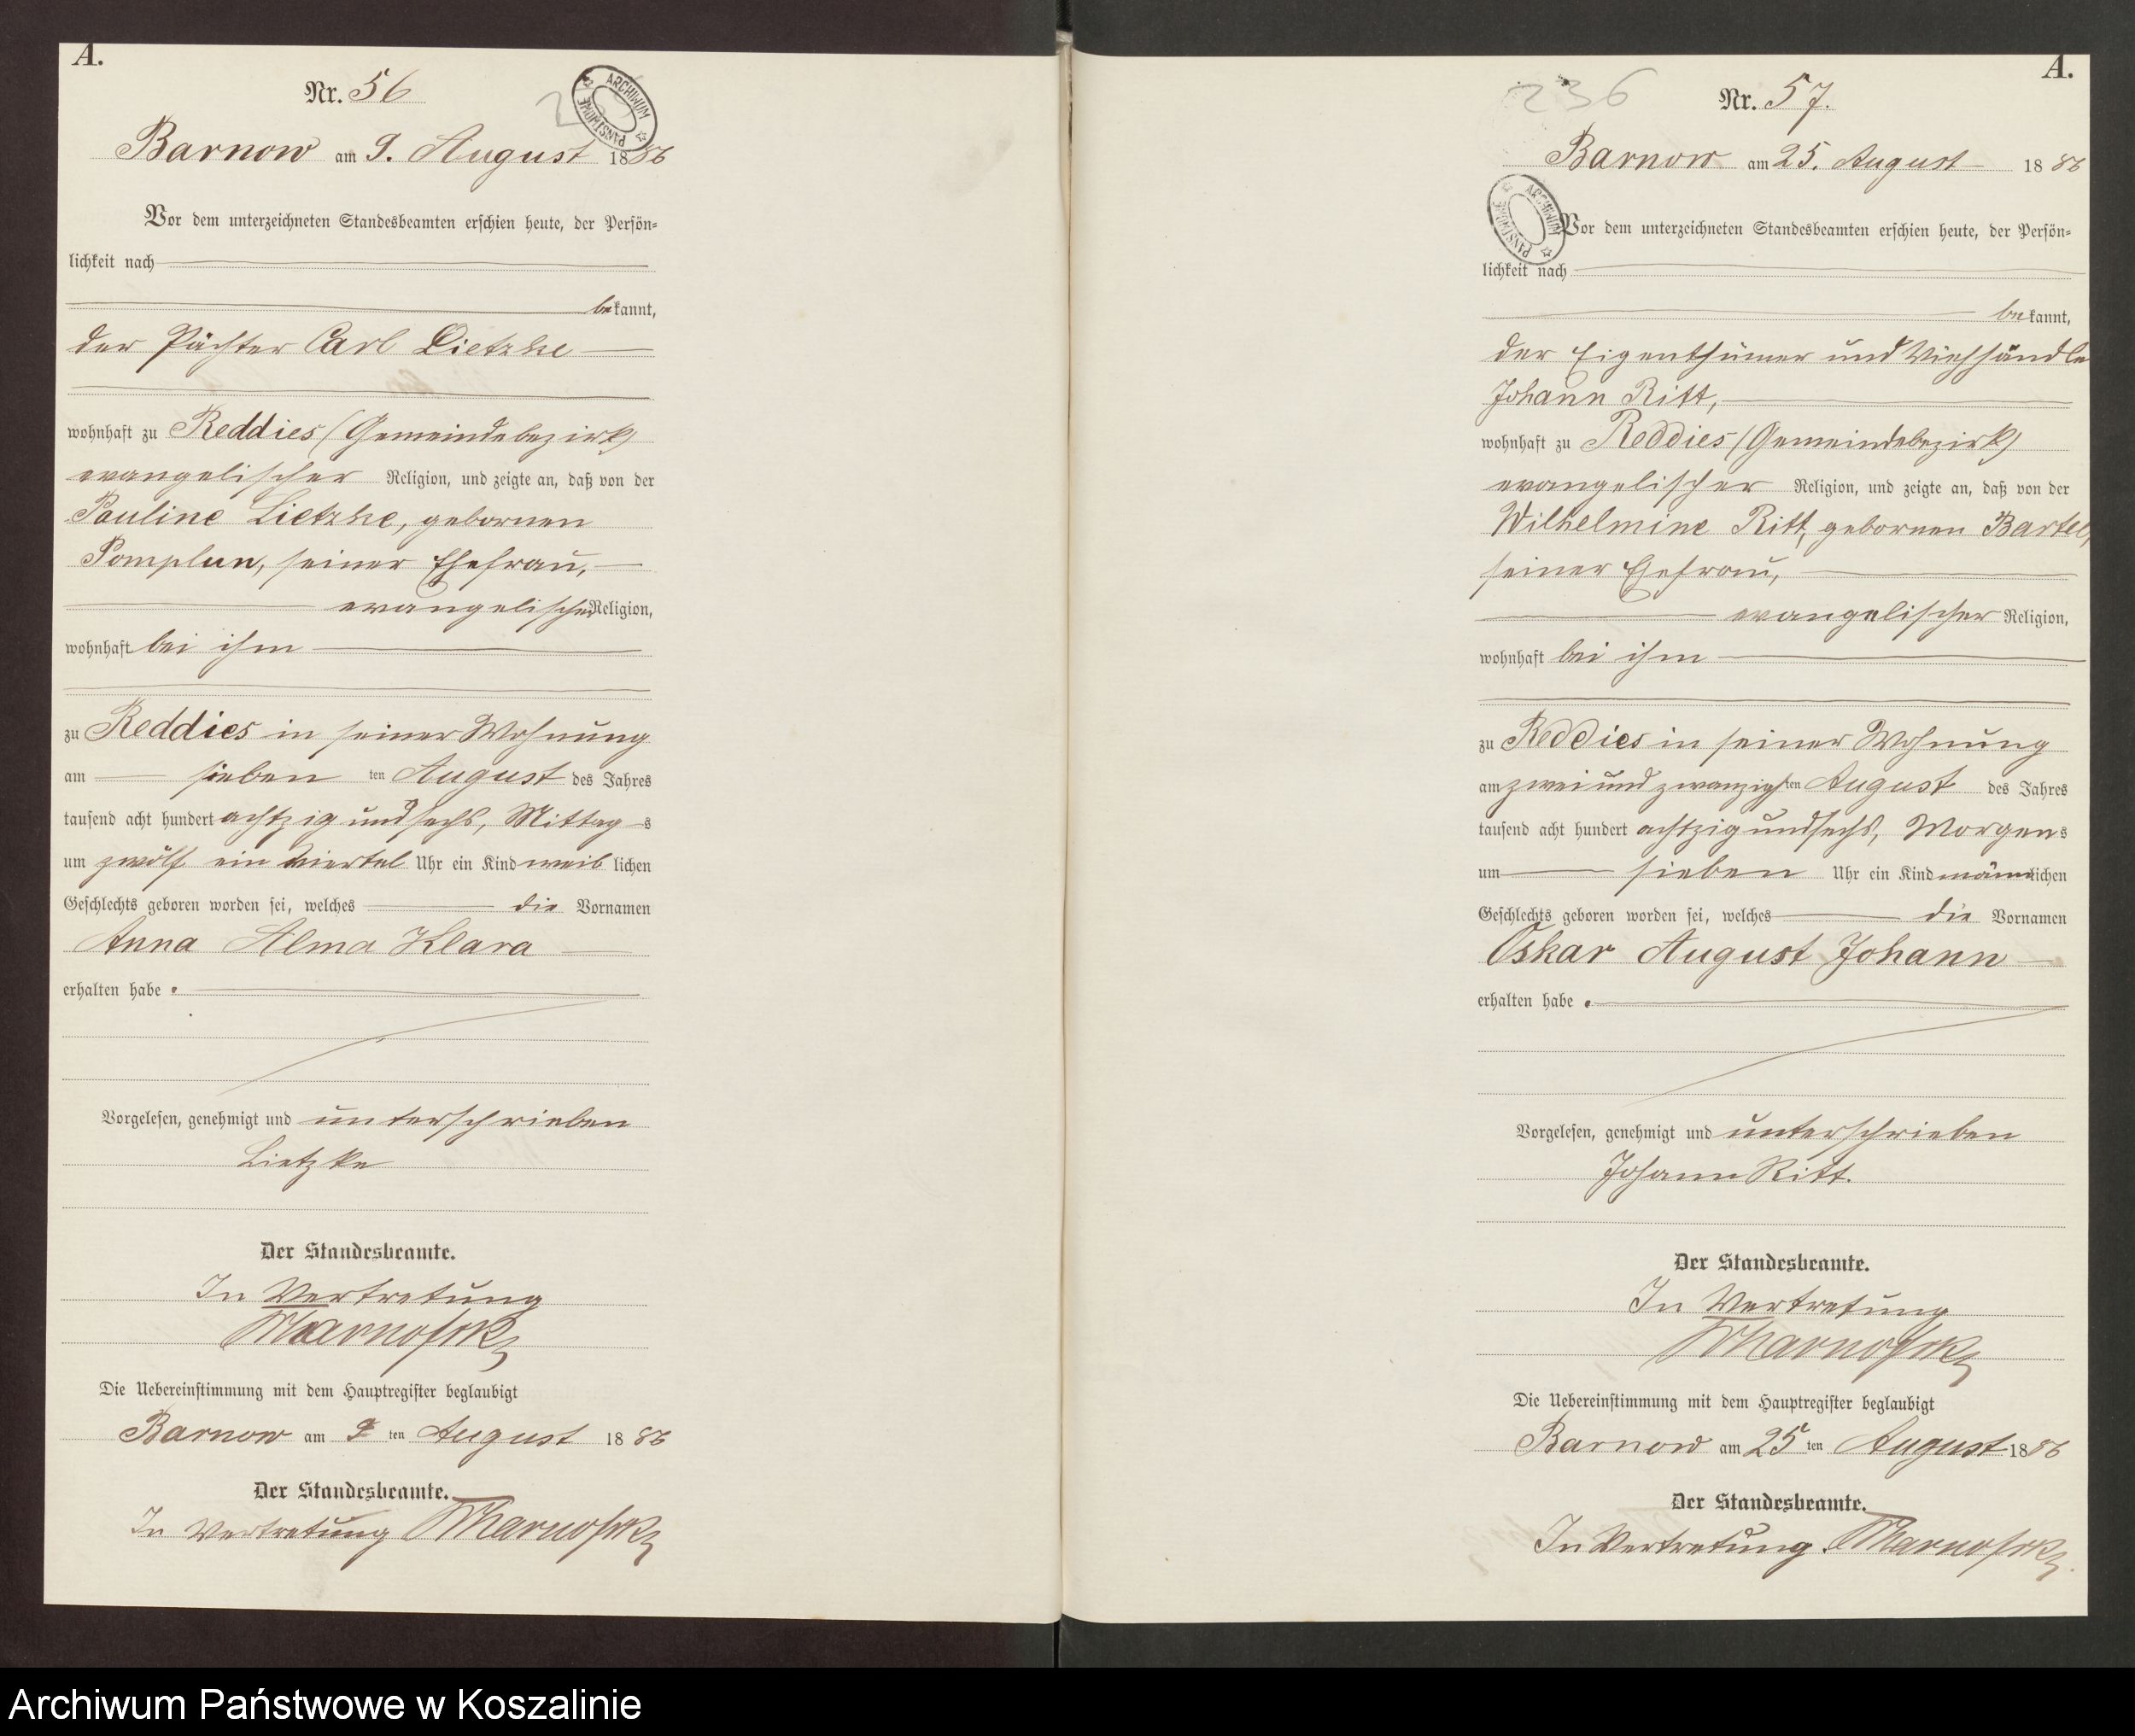 A.
Nr. 56
Barnow am 9. August 1886
Vor dem unterzeichneten Standesbeamten erschien heute, der Persön-
lichkeit nach
bekannt,
der Pächter Carl Lietzke
wohnhaft zu Reddies (Gemeindebezirk)
evangelischer Religion, und zeigte an, daß von der
Pauline Lietzke, gebornen
Pomplun, seiner Ehefrau,
evangelischer Religion,
wohnhaft bei ihm
zu Reddies in seiner Wohnung
am sieben ten August des Jahres
tausend acht hundert achtzig und sechs, Mittags
um zwölf ein viertel Uhr ein Kind weiblichen
Geschlechts geboren worden sei, welches die Vornamen
Anna Alma Klara
erhalten habe.
Vorgelesen, genehmigt und unterschrieben
Lietzke
Der Standesbeamte.
In Vertretung
Die Uebereinstimmung mit dem Hauptregister beglaubigt
Barnow am 9 ten August 1886
Der Standesbeamte.
In Vertretung
ARCHIWUM PAŃSTWOWE
A.
236
Nr. 57.
Barnow am 25. August 1886
ARCHIWUM PAŃSTWOWE
Vor dem unterzeichneten Standesbeamten erschien heute, der Persön-
lichkeit nach
bekannt,
der Eigenthümer und Viehhändle
Johann Ritt,
wohnhaft zu Reddies (Gemeindebezirk)
evangelischer Religion, und zeigte an, daß von der
Wilhelmine Ritt, gebornen Bartel,
seiner Ehefrau,
evangelischer Religion,
wohnhaft bei ihm
zu Reddies in seiner Wohnung
am zwei und zwanzigsten August des Jahres
tausend acht hundert achtzig und sechs, Morgens
um sieben Uhr ein Kind männlichen
Geschlechts geboren worden sei, welches die Vornamen
Oskar August Johann
erhalten habe.
Vorgelesen, genehmigt und unterschrieben
Johann Ritt.
Der Standesbeamte.
In Vertretung
Die Uebereinstimmung mit dem Hauptregister beglaubigt
Barnow am 25 ten August 1886
Der Standesbeamte.
In Vertretung
Archiwum Państwowe w Koszalinie